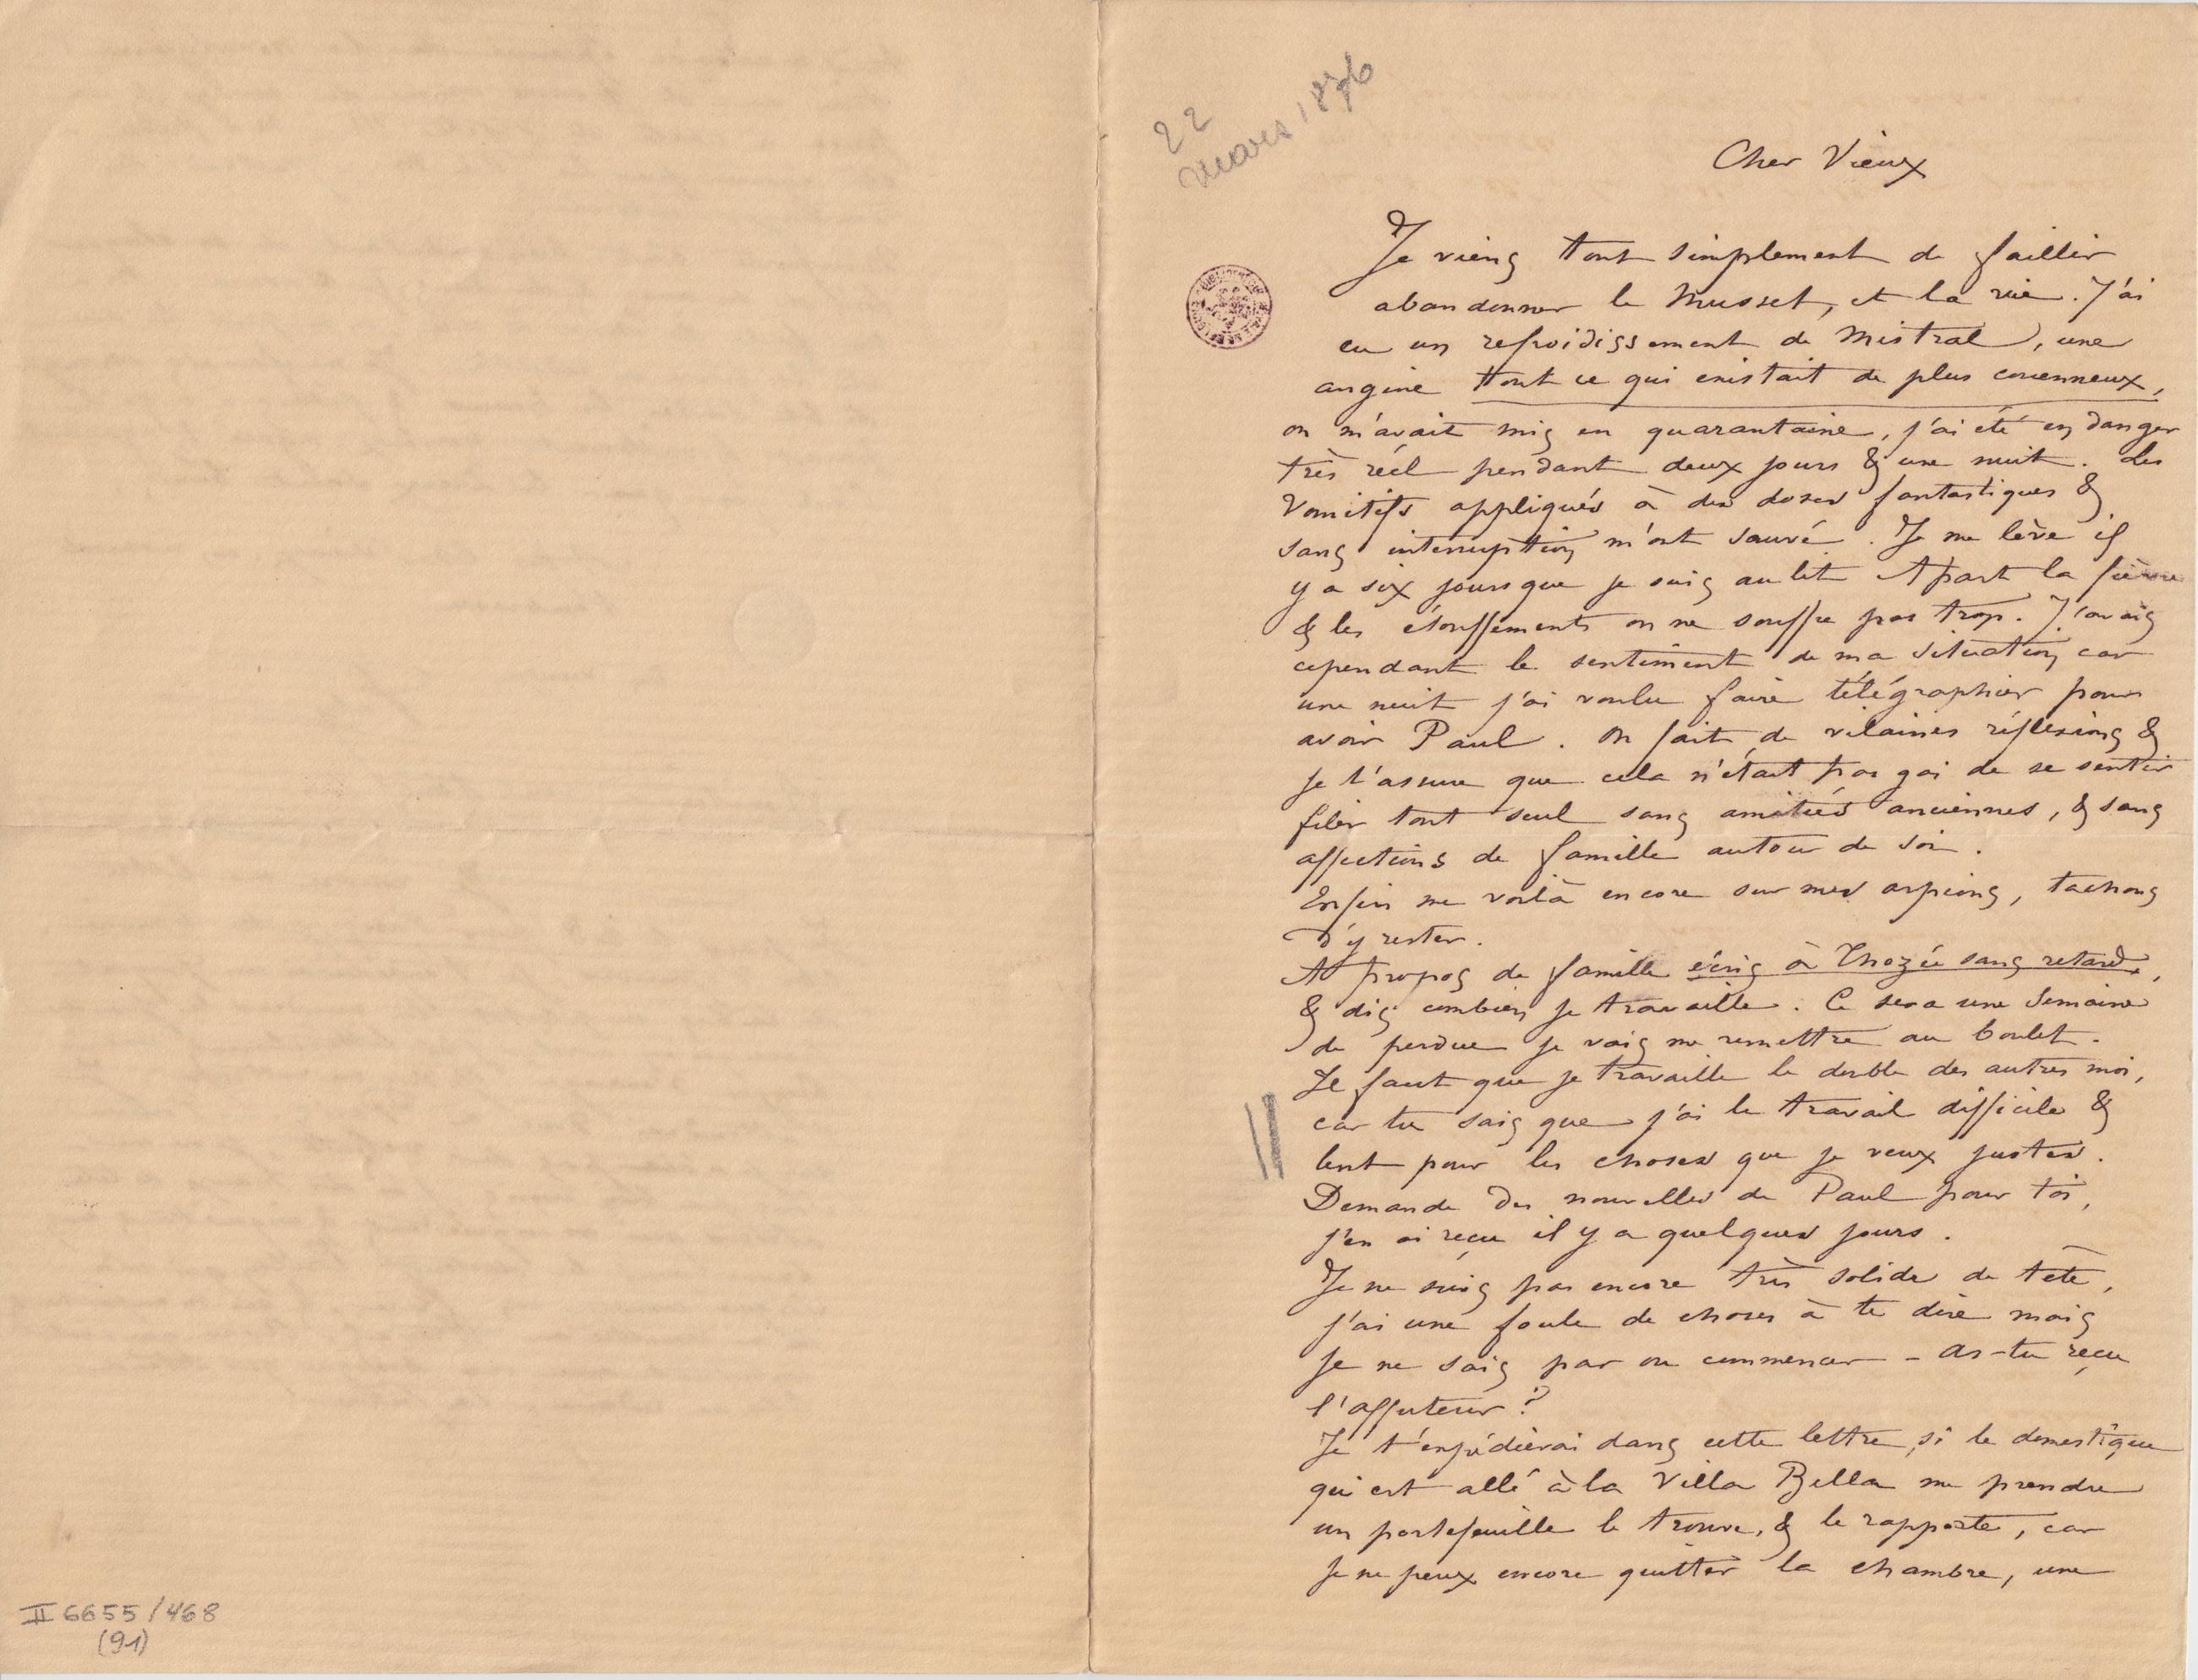 22
Mars 1876
Cher Vieux
Je viens tout simplement de faillir
abandonner le Musset, et la vie. J'ai
eu un refroidissement de Mistral, une
angine tout ce qui existait de plus couenneux,
on m'avait mis en quarantaine, j'ai été en danger
très réel pendant deux jours & une nuit. Les
Vomitifs appliqués à des doses fantastiques &
sans interruption m'ont sauvé. Je me lève il
y a six jours que je suis au lit A part la fièvre
& les étouffements on ne souffre pas trop. J'avais
cependant le sentiment de ma situation car
une nuit j'ai voulu faire télégraphier pour
avoir Paul. On fait de vilaines réflexions &
je t'assure que cela n'était pas gai de se sentir
filer tout seul sans amitiés anciennes, & sans
affections de famille autour de soi.
Enfin me voilà encore sur mes arpions, tachons
d'y rester.
A propos de famille écris à Thozée sans retard,
& dis combien je travaille. Ce sera une Semaine
de perdue je vais me remettre au boulet.
Il faut que je travaille le double des autres moi,
car tu sais que j'ai le travail difficile &
lent pour les choses que je veux justes.
Demande des nouvelles de Paul pour toi,
j'en ai reçu il y a quelques jours.
Je ne suis pas encore très solide de tête,
j'ai une foule de choses à te dire mais
je ne sais par ou commencer – As-tu reçu
l'affuteur?
Je t'expédierai dans cette lettre, si le domestique
qui est allé à la Villa Bella me prendre
un portefeuille le trouve, & le rapporte, car
je ne peux encore quitter la chambre, une
II 6655/468
(91)